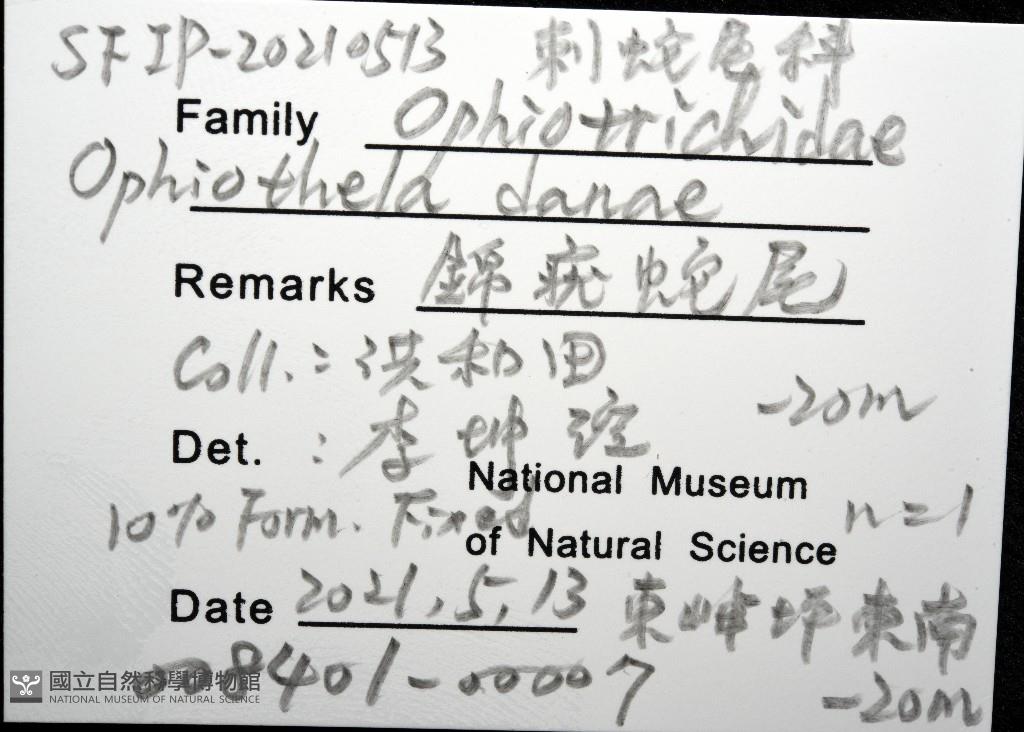 SFIP-20210513 刺蛇尾科
Family Ophiotrichidae
Ophiothela danae
Remarks 錦疣蛇尾
Coll.: 洪和田
-20m
Det. : 李坤瑄
National Museum
10% Form. Fixed
n=1
of Natural Science
Date 2021.5.13 東嶼坪東南
008401-00007
-20m
國立自然科學博物館
NATIONAL MUSEUM OF NATURAL SCIENCE